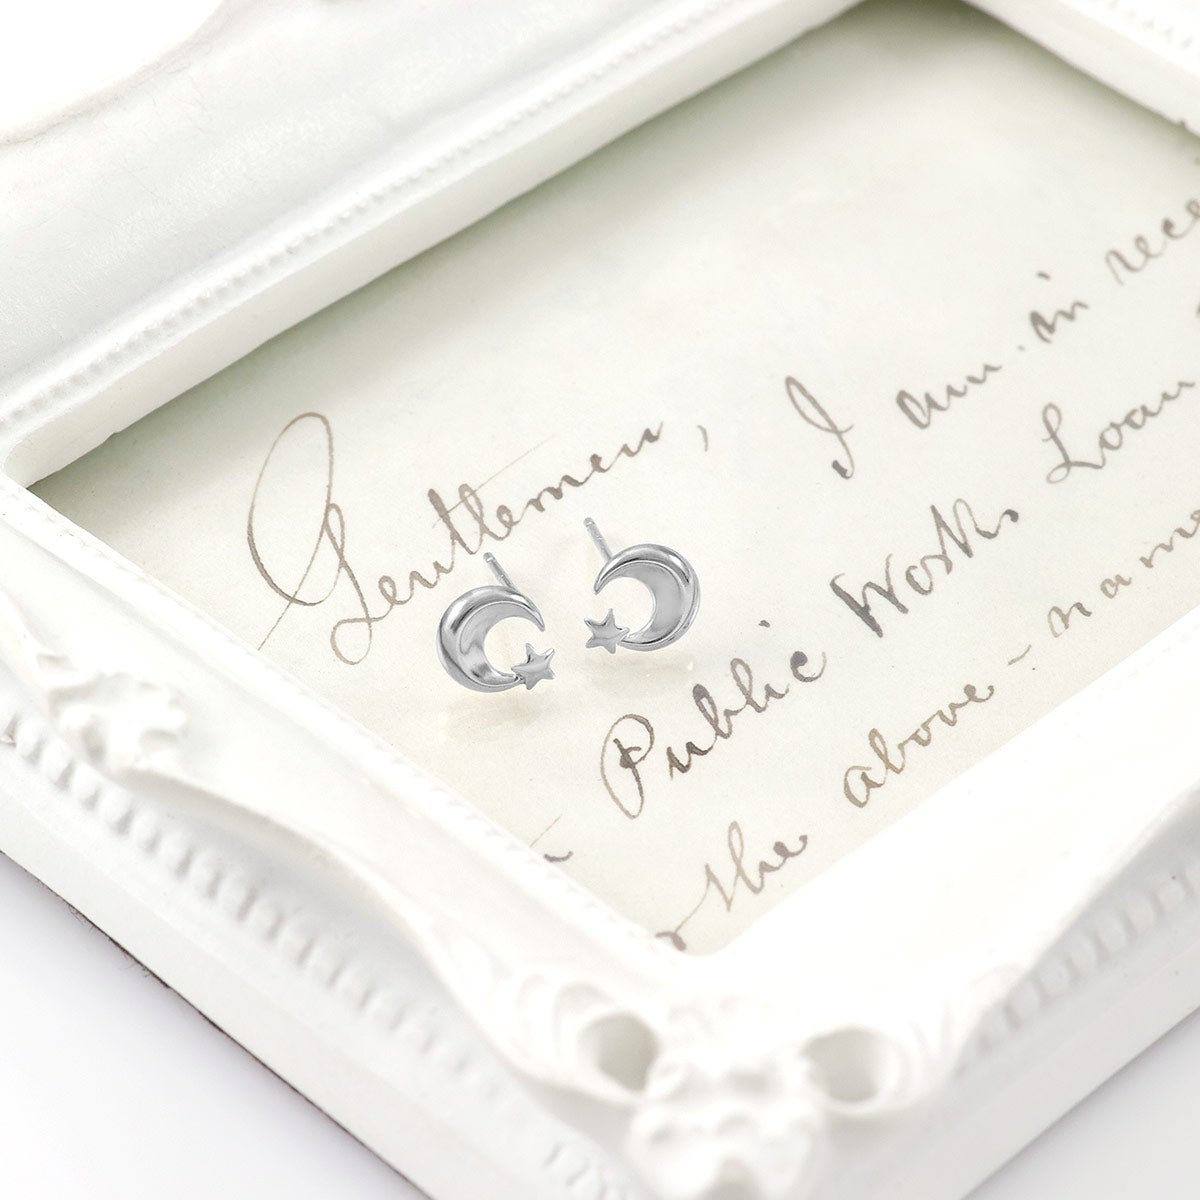 Gentlemen, I am in rece
Public Work. Loan
the above - name